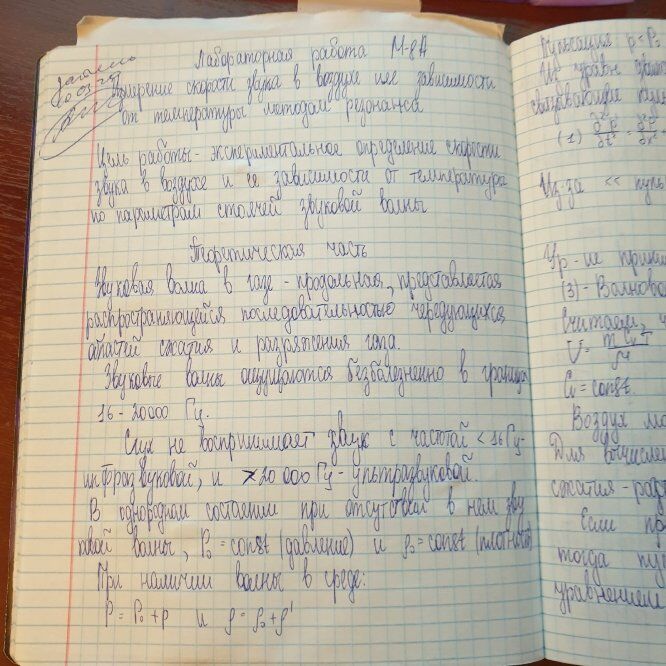 Лабораторная работа М-8А
Измерение скорости звука в воздухе и ее зависимости
от температуры методом резонанса
Цель работы - экспериментальное определение скорости
звука в воздухе и ее зависимости от температуры
по параметрам стоячей звуковой волны
Теоретическая часть
Звуковая волна в газе - продольная, представляется
распространяющейся последовательностью чередующихся
областей сжатия и разряжения газа
Звуковые волны ощущаются безболезненно в границах
16 - 20000 Гц.
Слух не воспринимает звук с частотой < 16 Гц-
инфразвуковой, и >20 000 Гц - ультразвуковой.
В однородном состоянии при отсутствии в нем зву
ковой волны, P₀ = const (давление) и ρ₀ = const (плотность)
При наличии волны в среде:
P = P₀ + p и ρ = ρ₀ + ρ'
Пульсация p = P₀
Из уравн
связывающие
(1)
Из-за << пуль
Ур-ие
(3) - Волново
Считаем,
Cᵥ = const.
Воздух мо
Для вычислен
сжатия-раз
Если пр
тогда пу
уравнением